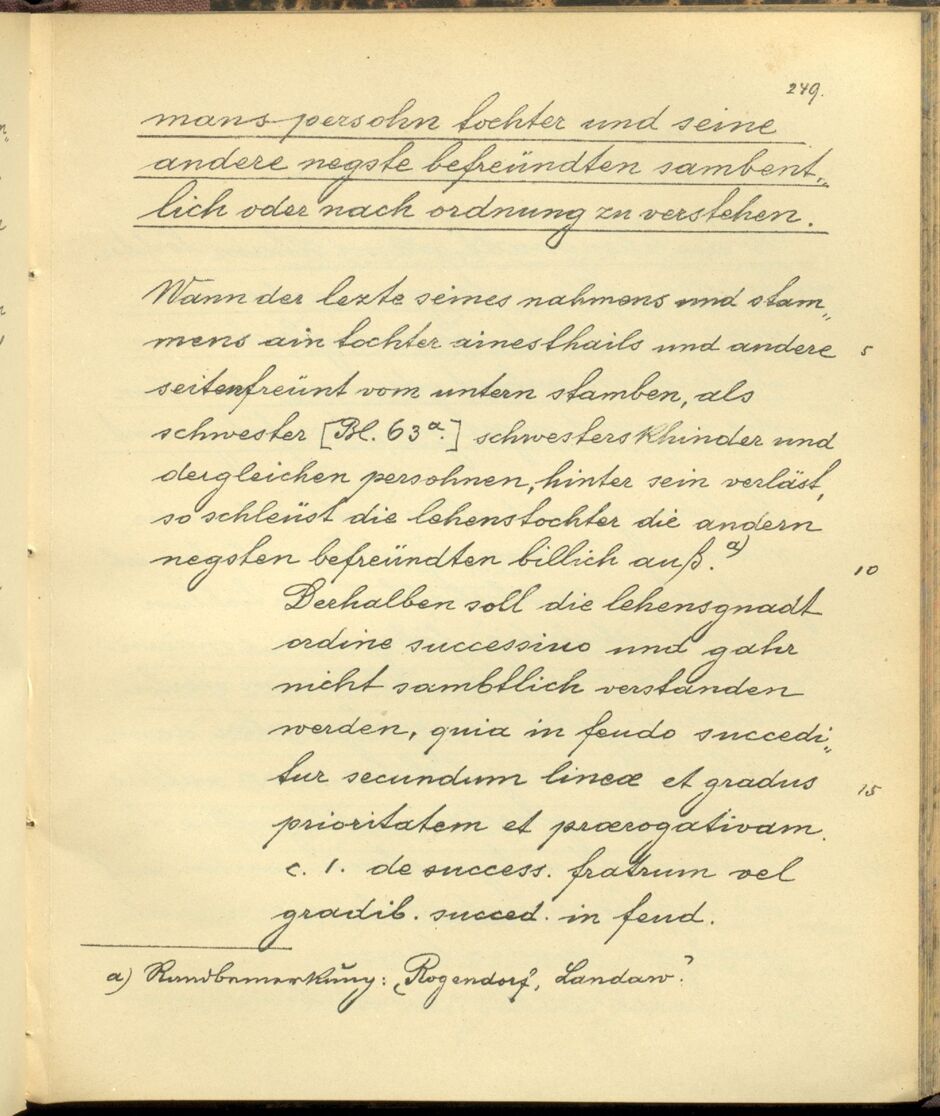 249.
mans persohn tochter und seine
andere negste befreündten sambent„
lich oder nach ordnung zu verstehen.
Wann der lezte seines nahmens und stam„
mens ain tochter ainesthails und andere 5
seitenfreünt vom untern stamben, als
schwester [Bl. 63a.] schwesters khinder und
dergleichen persohnen, hinter sein verläst,
so schleüst die lehenstochter die andern
negsten befreündten billich auß. a) 10
Derhalben soll die lehensgnadt
ordine successiuo und gahr
nicht sambtlich verstanden
werden, quia in feudo succedi„
tur secundum lineæ et gradus 15
prioritatem et prærogativam.
c. 1. de success. fratrum vel
gradib. succed. in feud.
a) Randbemerkung: „Rogendorf", Landaw?